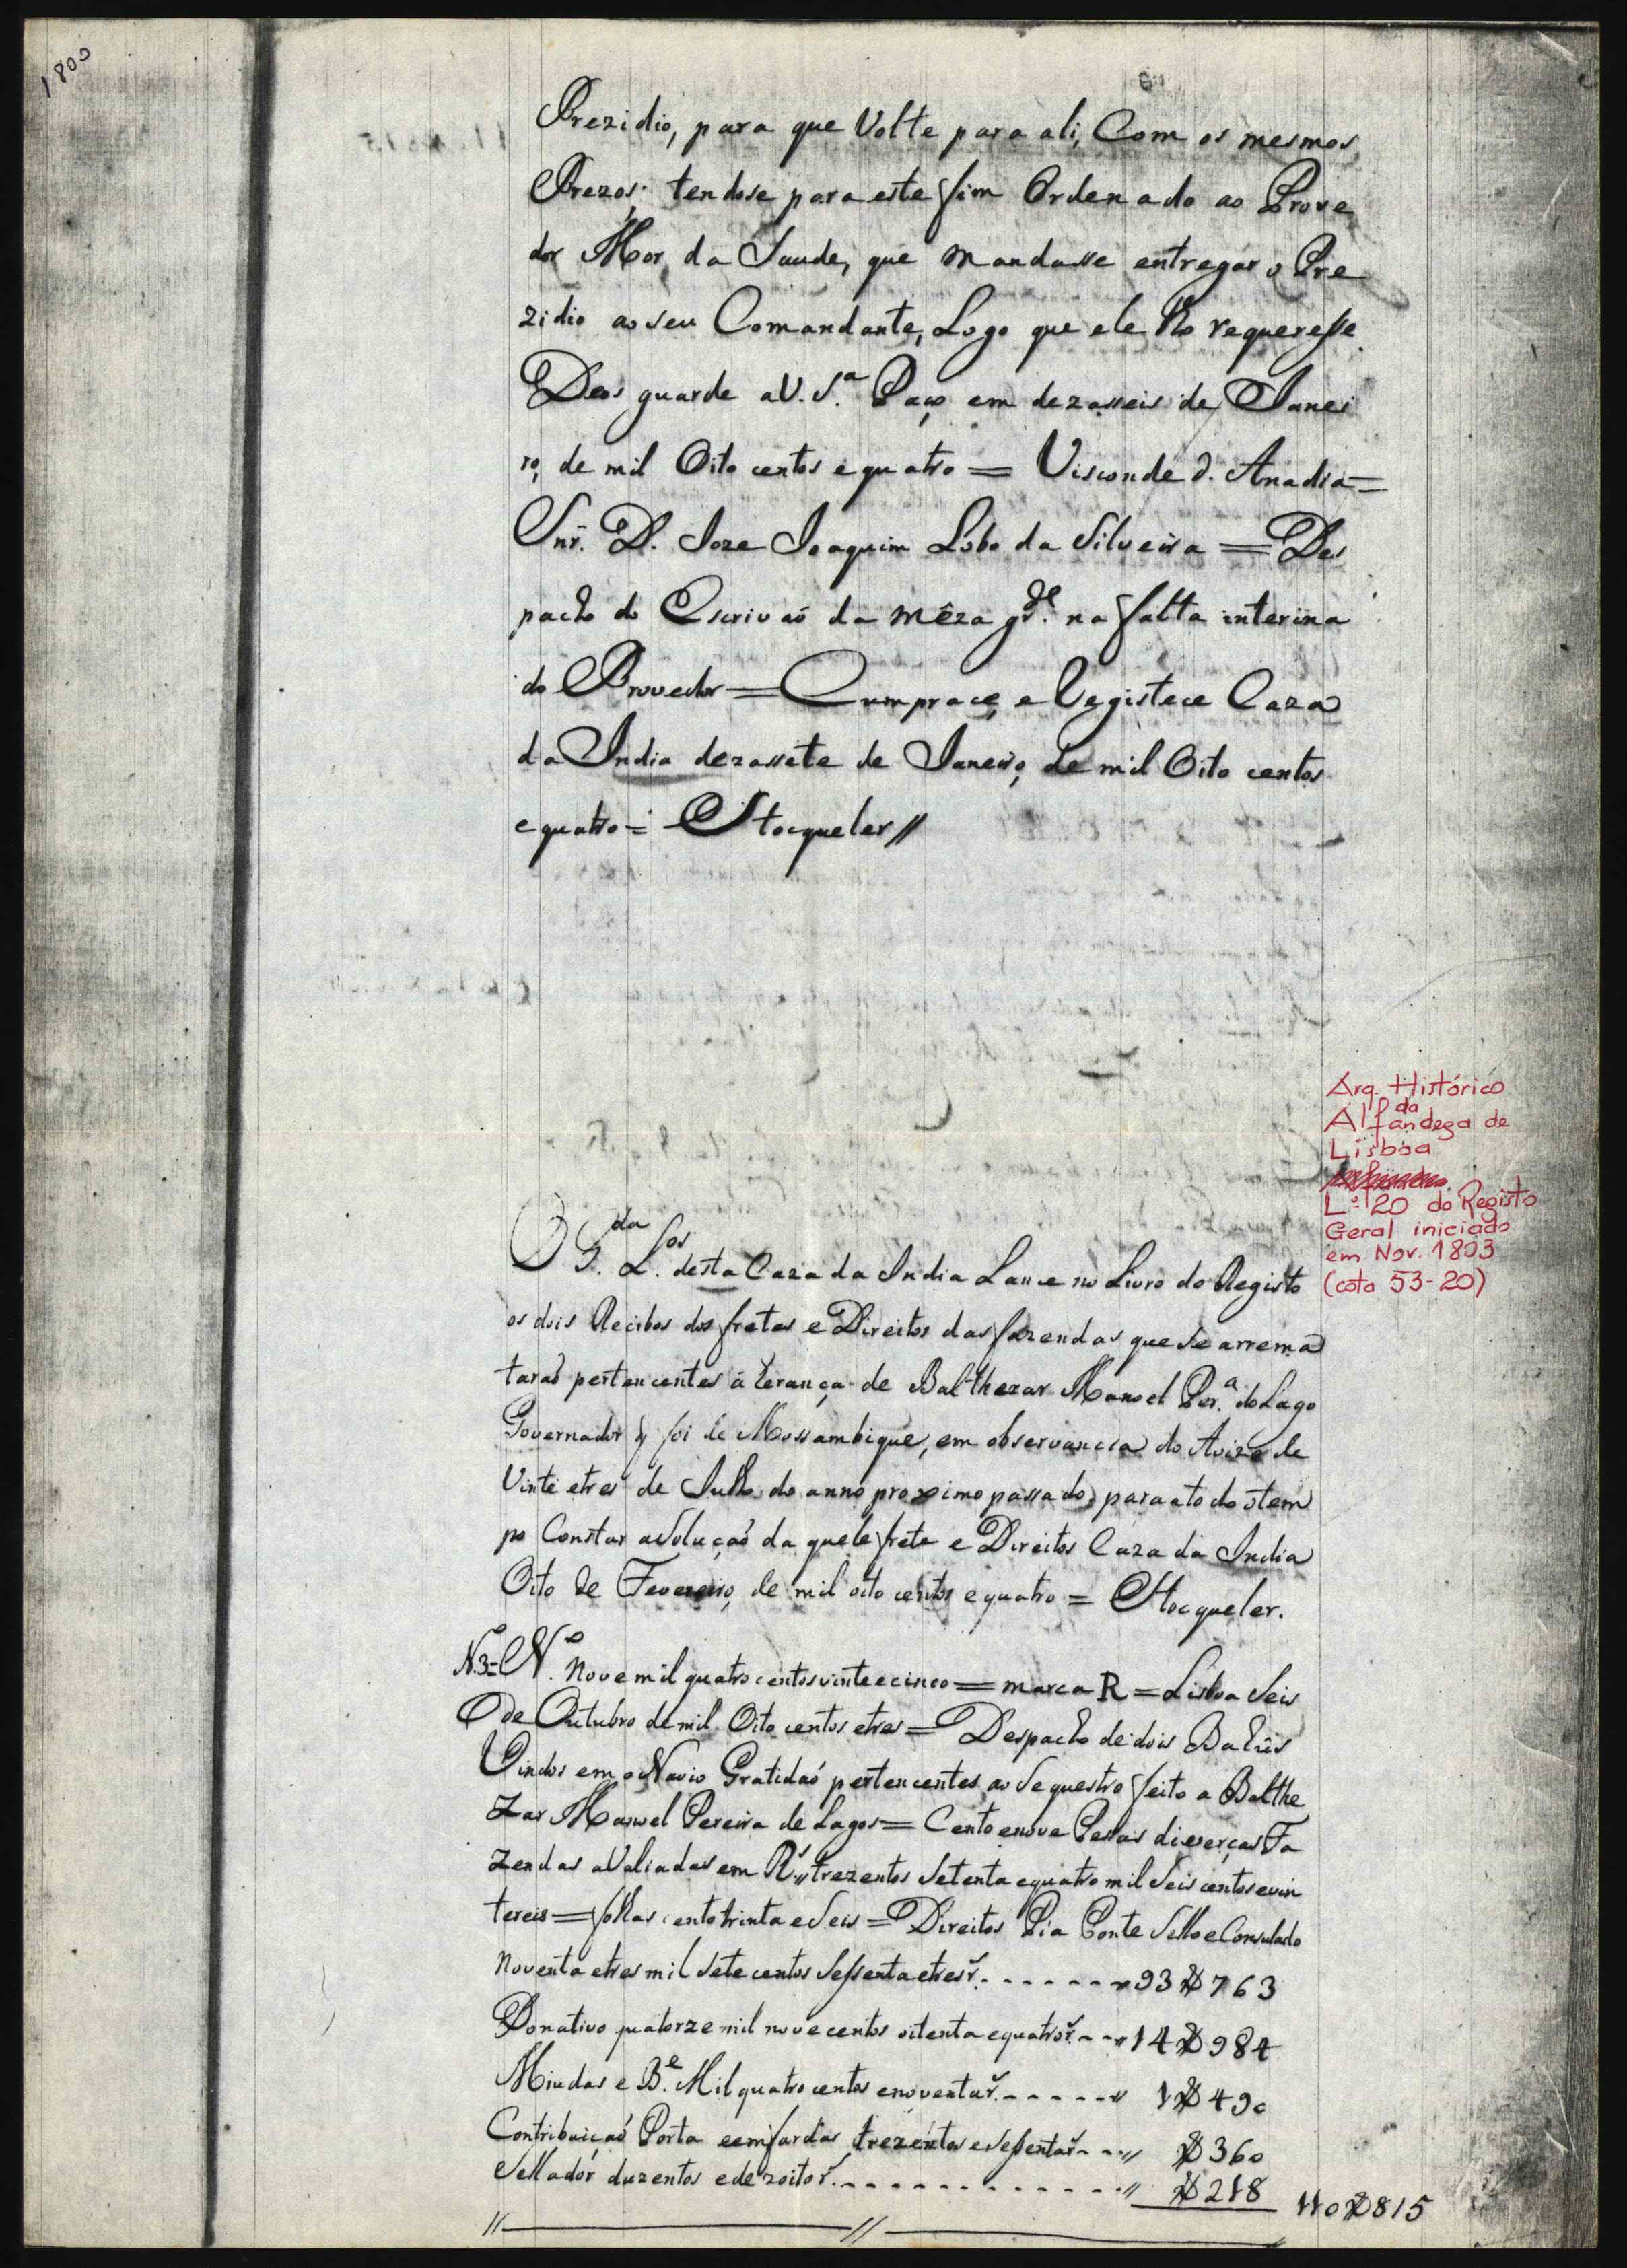 1800
Prezidio, para que Volte para ali, Com os mesmos
Prezos; tendose para este fim Ordenado ao Prove
dor Mor da Saude, que mandasse entregar o Pre
zidio ao seu Comandante, Logo que ele lho requeresse
Deos guarde a V. S.ª Paço em dezasseis de Janei
ro, de mil Oito centos e quatro = Visconde d. Anadia =
Snr. D. Joze Joaquim Lobo da Silveira = Des
pacho do Escrivaõ da mêza gr.de na falta interina
do Provedor = Cumprace, e Registece Caza
da India dezassete de Janeiro, de mil Oito centos
e quatro = Stocqueler //
Arq. Histórico
da
Alfandega de
Lisboa
L.º 20 do Registo
Geral iniciado
em Nov. 1803
(cota 53-20)
O G.da L.os desta Caza da India Lance no Livro do Registo
os dois Recibos dos fretes e Direitos das fazendas que se arrema
taraõ pertencentes á herança de Balthezar Manoel Per.ª do Lago
Governador q foi de Mossambique, em observancia do Avizo de
Vinte etres de Julho do anno proximo passado, para a todo o tem
po Constar a Soluçaõ da quele frete e Direitos Caza da India
Oito de Fevereiro, de mil oito centos e quatro = Stocqueler.
N.3 = N.º Nove mil quatro centos vinte e cinco = marca R = Lisboa Seis
de Outubro de mil Oito centos etres = Despacho de dois Bahûs
Vindos em o Navio Gratidaõ pertencentes ao Sequestro feito a Balthe
zar Manoel Pereira de Lagos = Cento enove Pessas diverças Fa
zendas aValiadas em R.s // trezentos Setenta equatro mil Seis centos evin
tereis = folhas cento trinta e Seis = Direitos Pia Ponte Sello e Consulado
Noventa etres mil Sete centos Sessenta etres r. - - - - - - " 93$763
Donativo quatorze mil nove centos oitenta equatro r. - - " 14$984
Miudas e B.e Mil quatro centos enoventa r. - - - - - " 1$490
Contribuiçaõ Porta eemfardas, trezentos eSessenta r. - - " $360
Sellador duzentos edezoito r. - - - - - - - - - - - - " $218 110$815